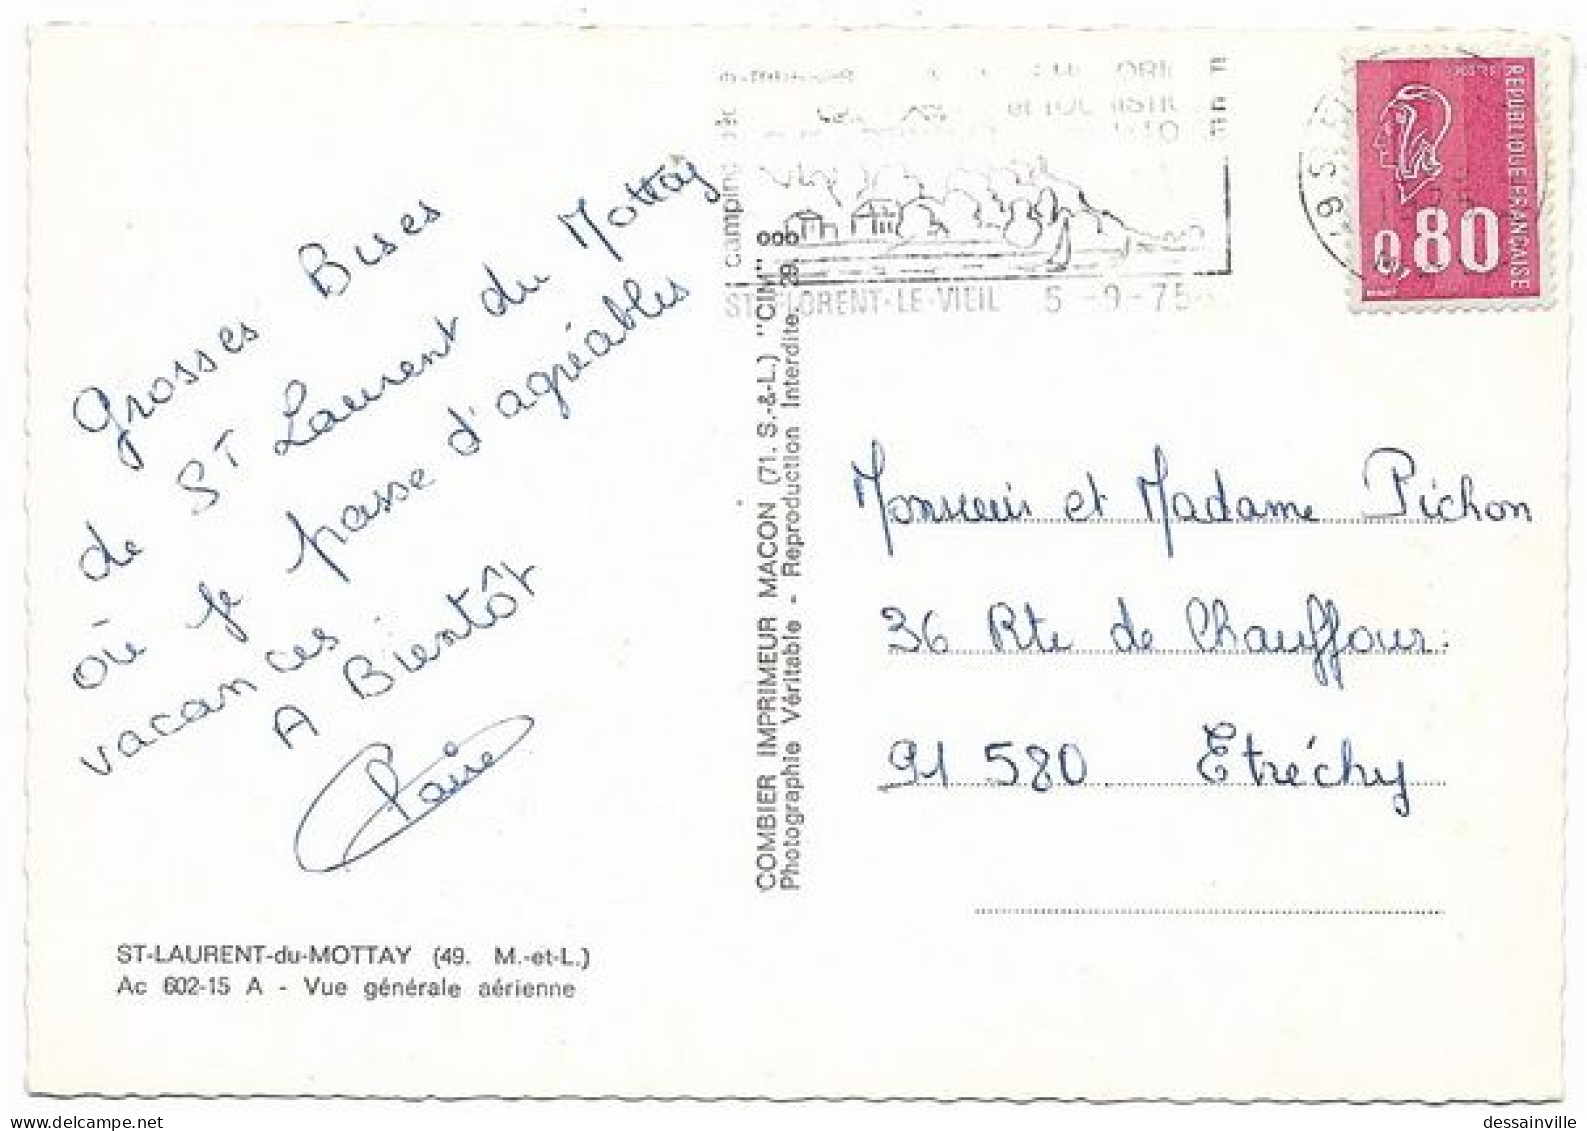 Grosses Bises
de St Laurent du Mottay
où je passe d'agréables
vacances.
A Bientôt
Claire
ST-LAURENT-du-MOTTAY (49. M.-et-L.)
Ac 602-15 A - Vue générale aérienne
COMBIER IMPRIMEUR MACON (71. S.-&-L.) "CIM"
Photographie Véritable - Reproduction Interdite.
camping
ST FLORENT-LE-VIEIL 5-9-75
REPUBLIQUE FRANÇAISE
POSTES
0,80
Monsieur et Madame Pichon
36 Rte de Chauffour.
91 580 Etréchy
dessainville